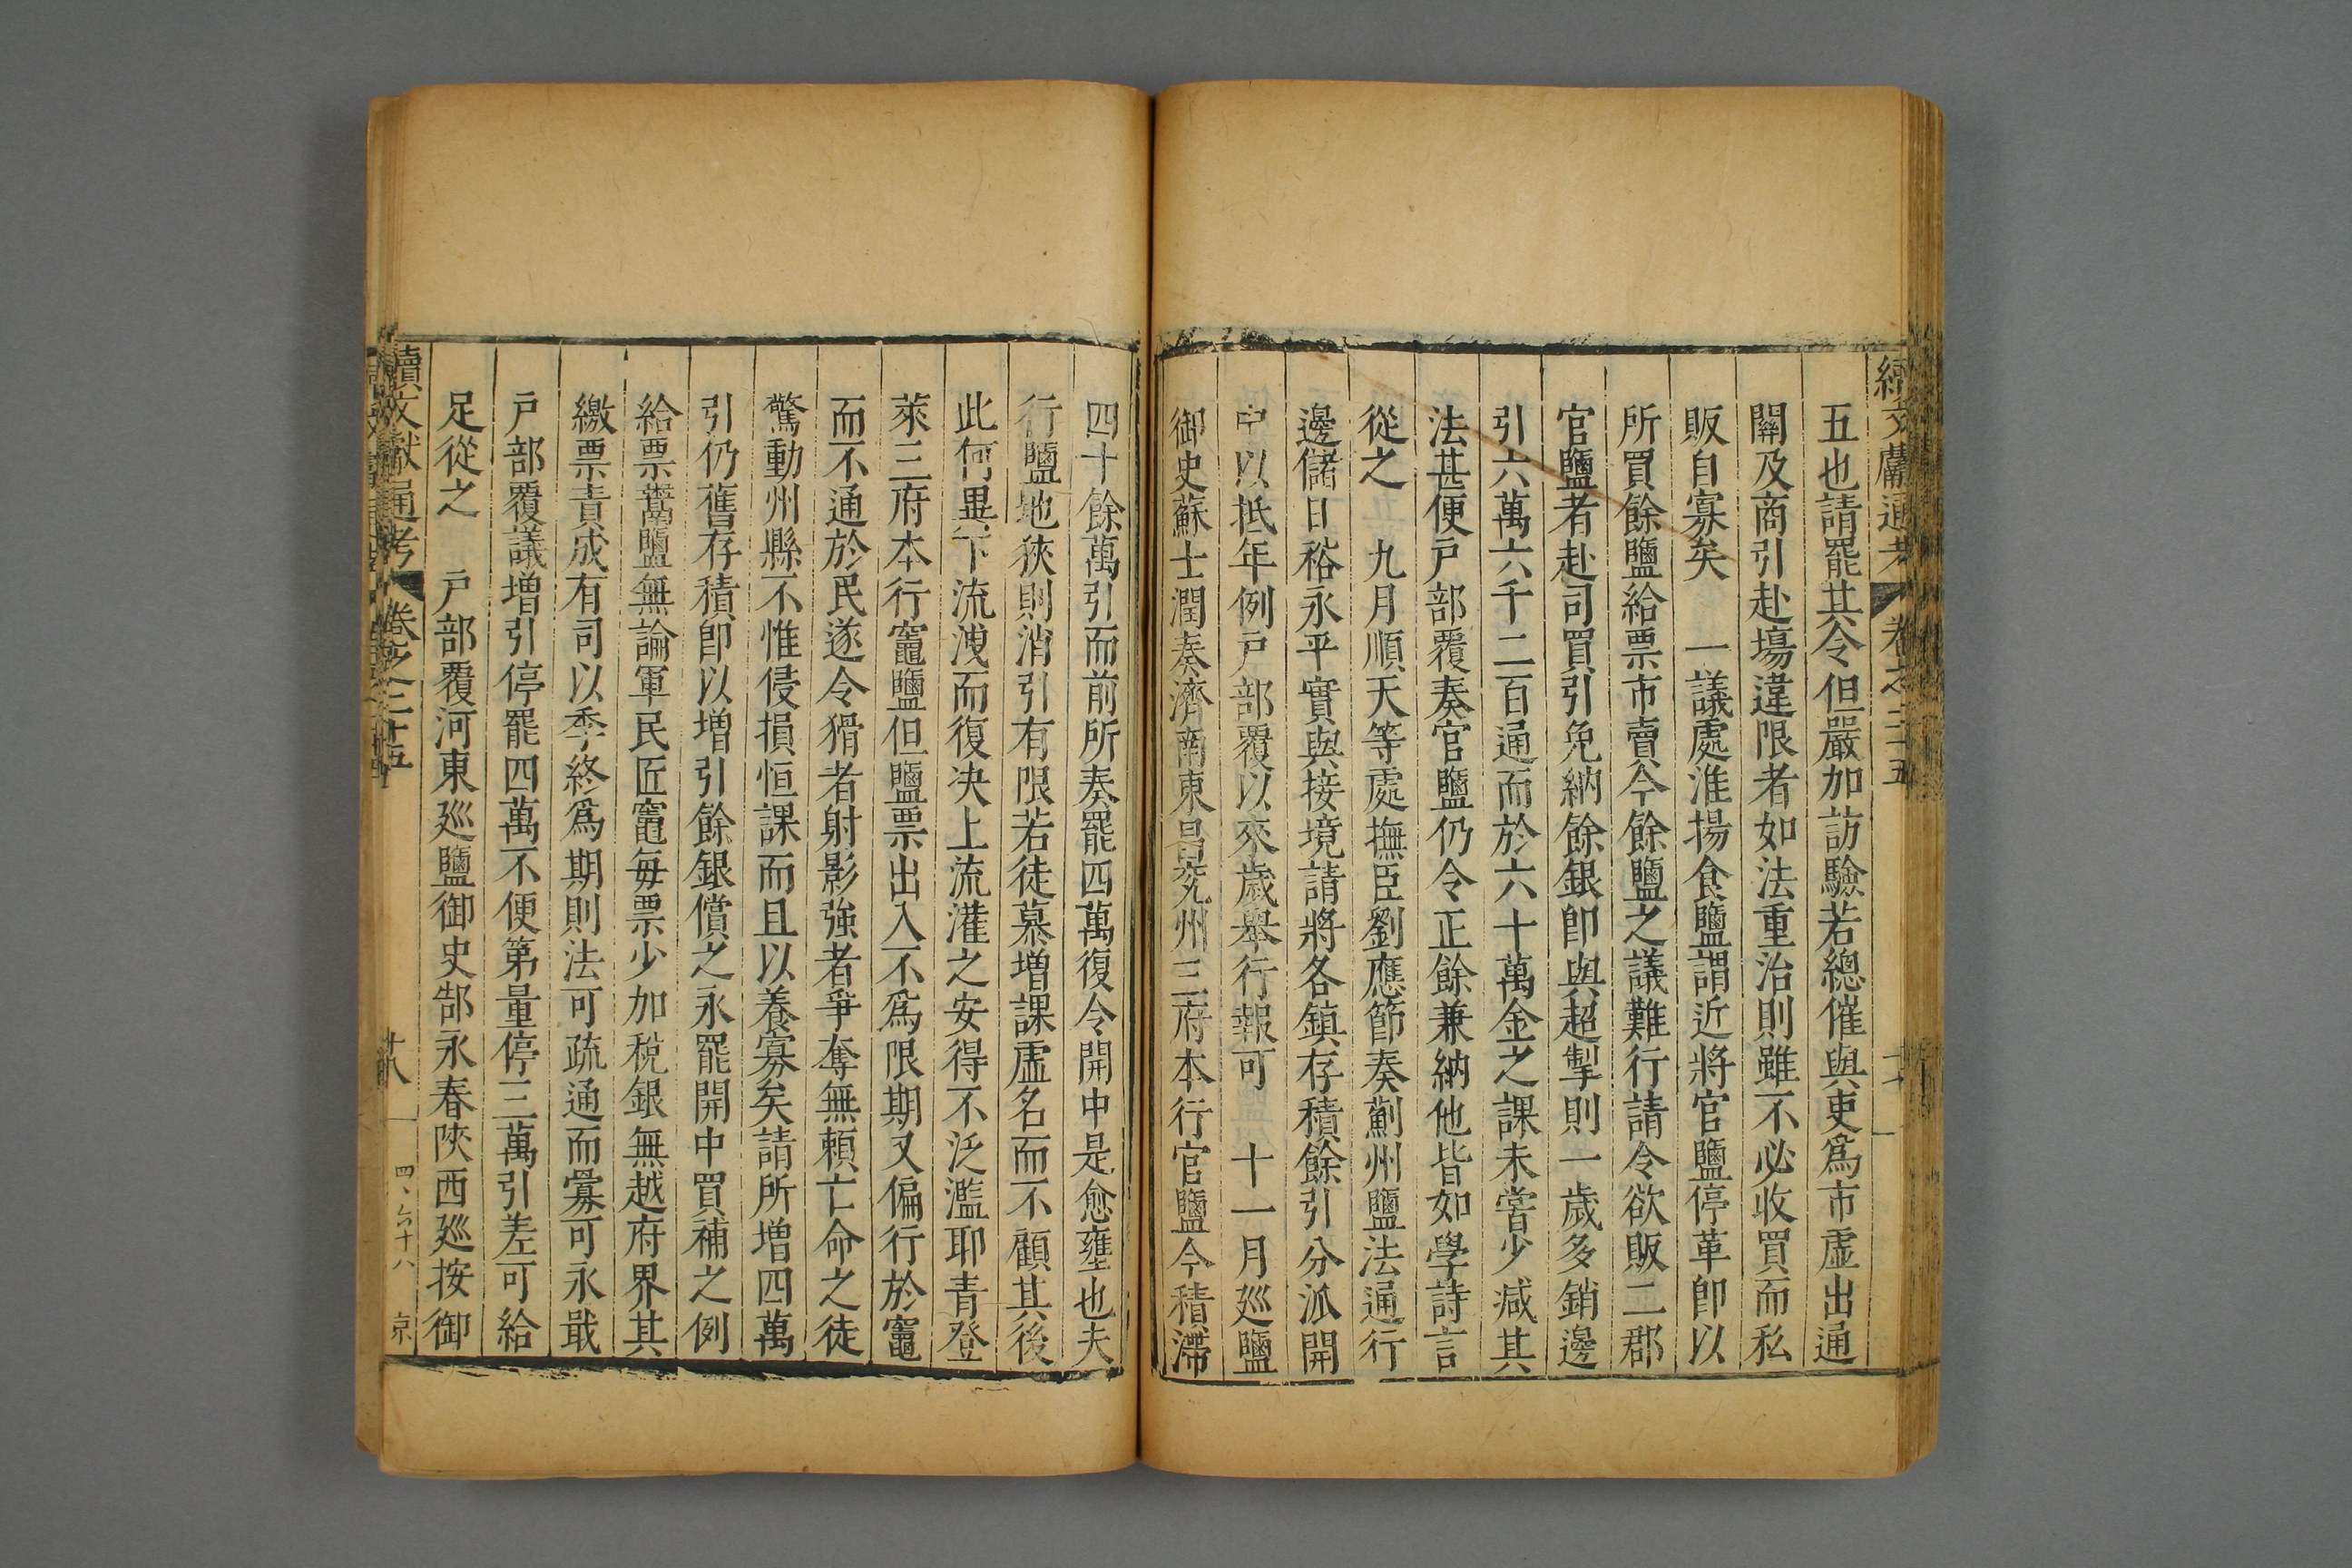 續文獻通考
卷之二十五
五也請罷其令但嚴加訪驗若總催與吏爲市虛出通
關及商引赴場違限者如法重治則雖不必收買而私
販自寡矣　一議處淮揚食鹽謂近將官鹽停革即以
所買餘鹽給票市賣今餘鹽之議難行請令欲販二郡
官鹽者赴司買引免納餘銀即與超掣則一歲多銷邊
引六萬六千二百通而於六十萬金之課未嘗少減其
法甚便戶部覆奏官鹽仍令正餘兼納他皆如學詩言
從之　九月順天等處撫臣劉應節奏薊州鹽法通行
邊儲日裕永平實與接境請將各鎮存積餘引分派開
中以抵年例戶部覆以來歲舉行報可　十一月廵鹽
御史蘇士潤奏濟南東昌兗州三府本行官鹽今積滯
四十餘萬引而前所奏罷四萬復令開中是愈壅也夫
行鹽地狹則消引有限若徒慕增課虛名而不顧其後
此何異下流洩而復决上流灌之安得不泛濫耶青登
萊三府本行竈鹽但鹽票出入不爲限期又偏行於竈
而不通於民遂令猾者射影強者爭奪無賴亡命之徒
驚動州縣不惟侵損恒課而且以養寡矣請所增四萬
引仍舊存積即以增引餘銀償之永罷開中買補之例
給票鬻鹽無論軍民匠竈每票少加稅銀無越府界其
繳票責成有司以季終爲期則法可疏通而寡可永戢
戶部覆議增引停罷四萬不便第量停三萬引差可給
足從之　戶部覆河東廵鹽御史郜永春陝西廵按御
續文獻通考
卷之二十五
十八
京